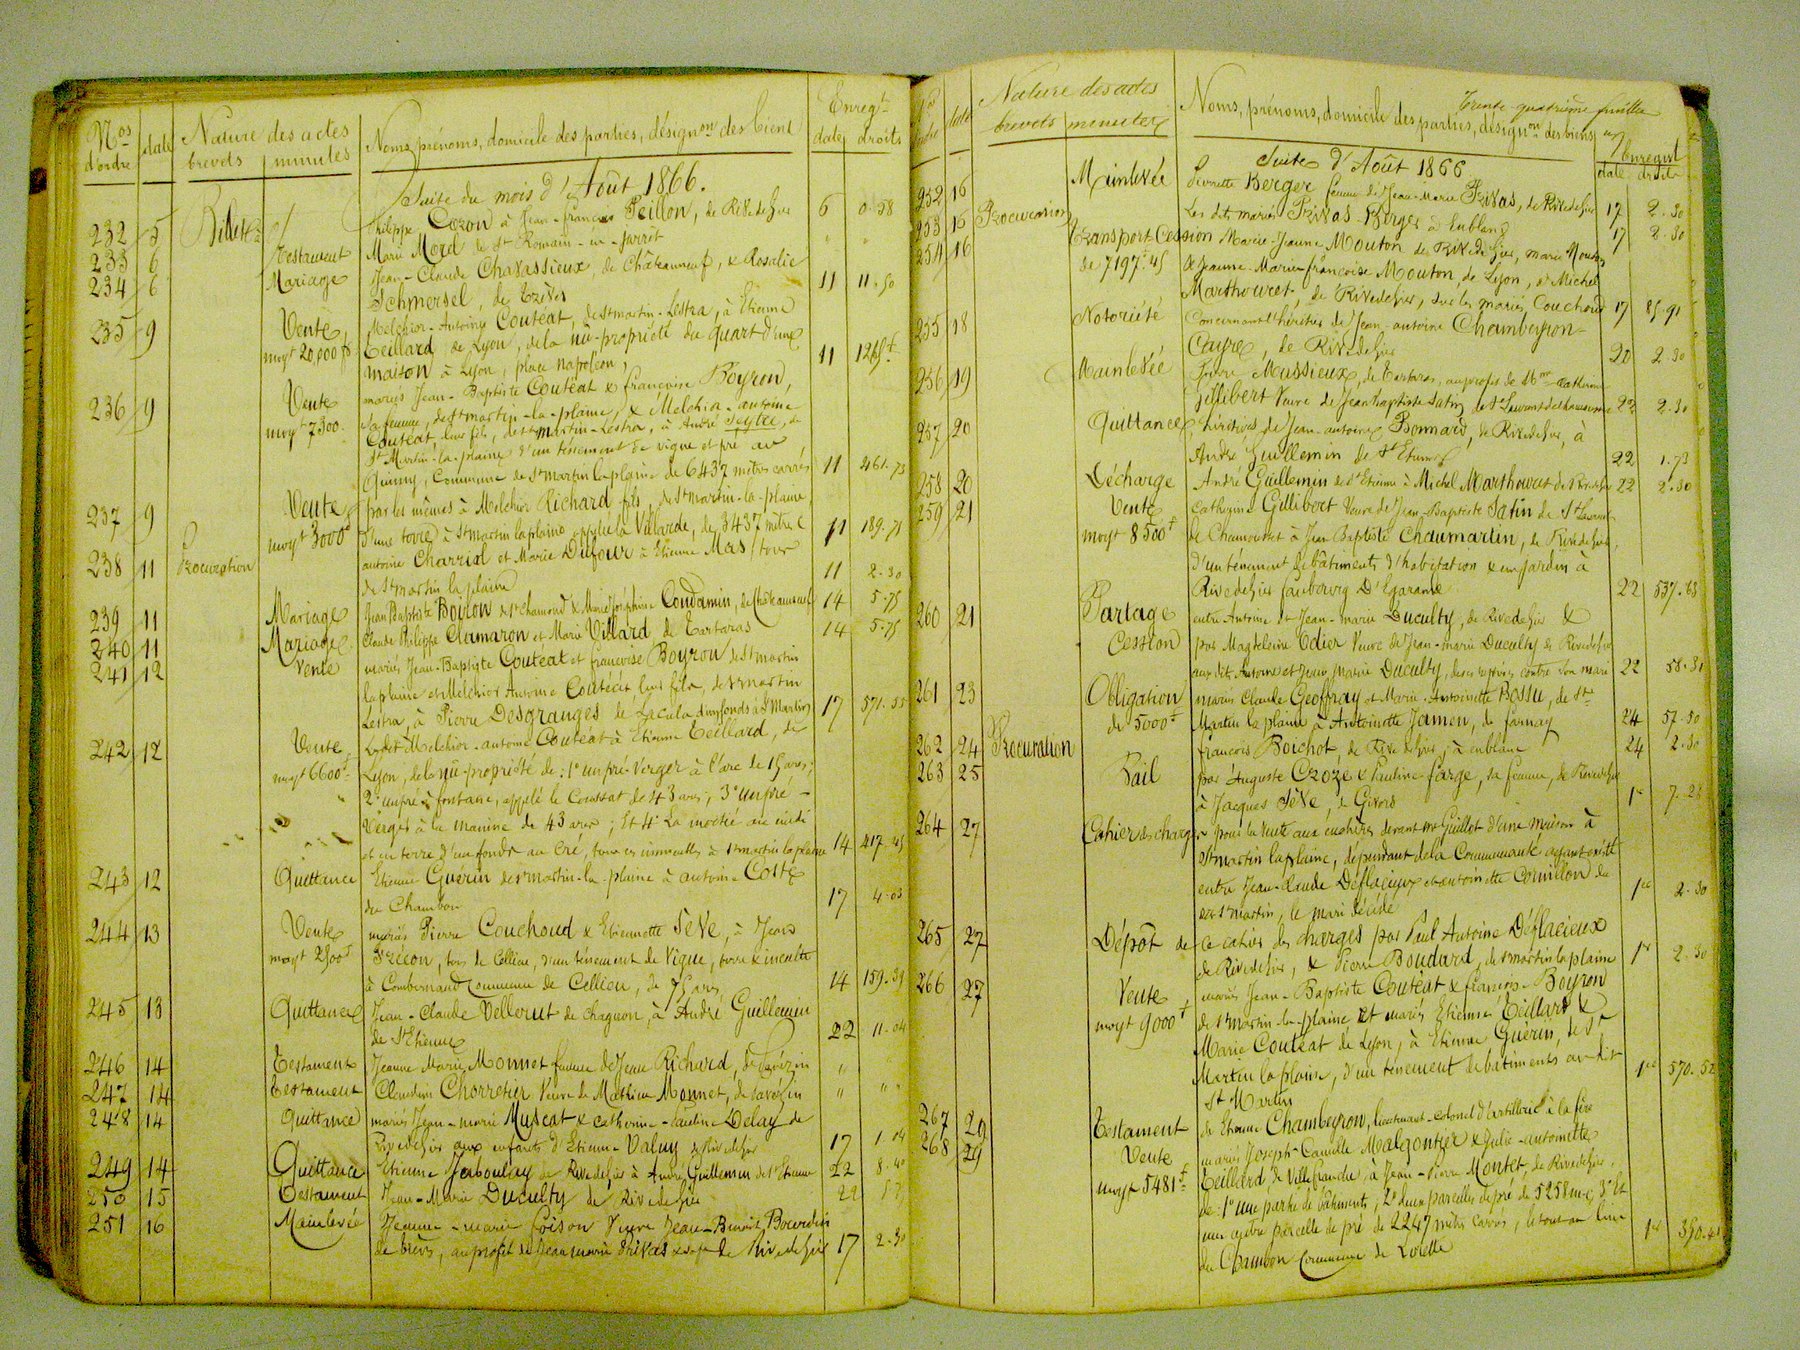 Nos d'ordre | date | Nature des actes | Noms, prénoms, domicile des parties, désignon des biens | Enregt
brevets | minutes | date | droits
Suite du mois d'Août 1866.
232 | 5 | Billet | Philippe Cozon à Jean-François Peillon, de Rivedegier | 6 | 0.58
233 | 6 | Testament | Marie Morel de St Romain-en-Jarrêt | " | "
234 | 6 | Mariage | Jean-Claude Chavassieux, de Châteauneuf, & Rosalie
Schmersel, de Trèves | 11 | 11.50
235 | 9 | Vente | Melchior-Antoine Coutéat, de St martin-Lestra, à Etienne
moyt 20,000 f | Teillard de Lyon, de la nù-propriété du quart d'une
maison à Lyon, place Napoléon, | 11 | 1265 f
236 | 9 | Vente | mariés Jean-Baptiste Coutéat & françoise Boyron,
moyt 7300 | sa femme, de St martin-la-plaine, & Melchior-antoine
Coutéat, leur fils, de St Martin-Lestra, à André Peytel, de
St Martin-la-plaine d'un ténement de vigne et pré au
Commune de St martin la plaine de 6437 mètres carrés | 11 | 461.73
237 | 9 | Vente | par les mêmes à Melchior Richard fils, de St martin-la-plaine
moyt 3000 | d'une terre à St martin laplaine appelée la Villarde, de 3437 mètres | 11 | 189.75
238 | 11 | Procuration | antoine Charrin et Marie Dufour à Etienne Mas, tous
de St martin la plaine | 11 | 2.30
239 | 11 | Mariage | Jean Baptiste Boiron de St chamond & Marie Joséphine Condamin, de Châteauneuf | 14 | 5.75
240 | 11 | Mariage | Claude Philippe Clamaron et Marie Villard de Tartaras | 14 | 5.75
241 | 12 | Vente | mariés Jean-Baptiste Coutéat et françoise Boyron de St martin
la plaine et Melchior Antoine Coutéat leur fils, de St martin
Lestra, à Pierre Desgranges de Lacula d'un fonds à St Martin | 17 | 571.55
242 | 12 | Vente | Ledit Melchior-antoine Coutéat à Etienne Teillard, de
moyt 6600 f | Lyon, de la nù-propriété de: 1° un pré-verger à l'arc de 19 ares;
2° un pré à fontane, appelé le Coussat de 43 ares; 3° un pré-
Verger à la manine de 43 ares; Et 4° La moitié au midi
et en terre d'un fonds au Cré, tous ces immeubles à St martin la plaine | 14 | 417.45
243 | 12 | Quittance | Etienne Guerin de St martin-la-plaine à antoine Coste
du Chambon | 17 | 4.03
244 | 13 | Vente | mariés Pierre Couchoud & Etiennette Sève, à Jean
moyt 2500 f | Frécon, tous de Cellieu, d'un ténement de Vigne, terre & inculte
à Combernaud Commune de Cellieu, de | 14 | 159.39
245 | 13 | Quittance | Jean-Claude Vellerut de chagnon, à André Guillemin
de St Etienne | 22 | 11.04
246 | 14 | Testament | Jeanne Marie Monnet femme de Jean Richard, | "
247 | 14 | Testament | Claudine Chorretier Veuve de Mathieu Monnet, | " | "
248 | 14 | Quittance | mariés Jean-marie Muscat & catherine-Pauline Delay de
Rivedegier aux enfants d'Etienne Valuy de Rivedegier | 17 | 1.04
249 | 14 | Quittance | Etienne Jaboulay de Rivedegier à André Guillemin de St Etienne | 22 | 8.40
250 | 15 | Testament | Jean-Marie Duculty de Rivedegier | 22
251 | 16 | Mainlevée | Jeanne-marie foison Veuve Jean-Benoit Bourdin
au profit de Jean marie Privas & sa fe de Rivedegier | 17 | 2.30
Trente-quatrième feuillet
Nos d'ordre | date | Nature des actes | Noms, prénoms, domicile des parties, désignon des biens | Enregist
brevets | minutes | date | droits
Suite d'Août 1866
252 | 16 | Mainlevée | Pierrette Berger femme de Jean-Marie Privas, de Rivedegier | 17 | 2.30
253 | 16 | Procuration | Les dits mariés Privas-Berger à Enblanc | 17 | 2.30
254 | 16 | Transport-Cession | Marie-Jeanne Mouton de Rivedegier, marie Mouton
de 7197 f 45 | & Jeanne-Marie-françoise Mouton, de Lyon, à Michel
Marthouret, de Rivedegier, sur les mariés Couchoud | 17 | 85.91
255 | 18 | Notoriété | Concernant l'hérédité de Jean-antoine Chambeyron-
de Rivedegier | 20 | 2.30
256 | 19 | Mainlevée | Pierre Mussieux, de Tartaras, au profit de Catherine
Gillibert Veuve de Jean baptiste Satin, de St Laurent | 22 | 2.30
257 | 20 | Quittance | héritiers de Jean-antoine Bonnard, de Rivedegier, à
André Guillemin de St Etienne | 22 | 1.73
258 | 20 | Décharge | André Guillemin de St Etienne à Michel Marthouret de Rivedegier | 22 | 2.30
259 | 21 | Vente | Catherine Gillibert Veuve de Jean-Baptiste Satin de St Laurent
moyt 8500 f | de Chamousset à Jean Baptiste Chaumartin, de Rivedegier,
d'un ténement de bâtiments d'habitation & un jardin à
Rivedegier faubourg D'Egarande | 22 | 537.63
260 | 21 | Partage | entre Antoine et Jean-Marie Duculty, de Rivedegier &
Cession | par Magdeleine Odier Veuve de Jean-marie Duculty de Rivedegier
aux dits Antoine et Jean Marie Duculty, de ses reprises contre son mari | 22 | 58.31
261 | 23 | Obligation | mariés Claude Geoffray et Marie-Antoinette Bossu, de St
de 5000 f | Martin la plaine à Antoinette Jamen, de farnay | 24 | 57.50
262 | 24 | Procuration | françois Boichot, de Rive de Gier, à enblanc | 24 | 2.30
263 | 25 | Bail | par Auguste Crozé & Pauline Farge, sa femme, de Rivedegier
à Jacques Sève, de Givors | 1er | 7.26
264 | 27 | Cahier des charges | pour la vente aux enchères devant me Guillot d'une maison à
St martin la plaine, dépendant de la Communauté ayant existé
entre Jean-Claude Déflacieux et antoinette Cornillon de
St martin, le mari décédé | 1er | 2.30
265 | 27 | Dépôt de | ce cahier des charges par Paul Antoine Déflacieux
de Rivedegier, & Pierre Boudard, de St martin la plaine | 1er | 2.30
266 | 27 | Vente | mariés Jean-Baptiste Coutéat & françoise Boyron
moyt 9000 f | de St martin-la-plaine et mariés Etienne Teillard &
Marie Coutéat de Lyon, à Etienne Guerin, de St
Martin la plaine, d'un ténement de bâtiments au dit
St Martin | 1er | 570.52
267 | 29 | Testament | de Etienne Chambeyron, lieutenant-colonel d'artillerie à la fère
268 | 29 | Vente | mariés Joseph-Camille Malgontier & Julie-antoinette
moyt 5481 f | Teillard de Villefranche, à Jean-Pierre Montet, de Rivedegier,
de: 1° une partie de bâtiments, 2° deux parcelles de pré de 5258 m c, 3° Et
une autre parcelle de pré de 2247 mètres carrés, le tout au lieu
du Chambon Commune de Lorette | 1er | 350.41